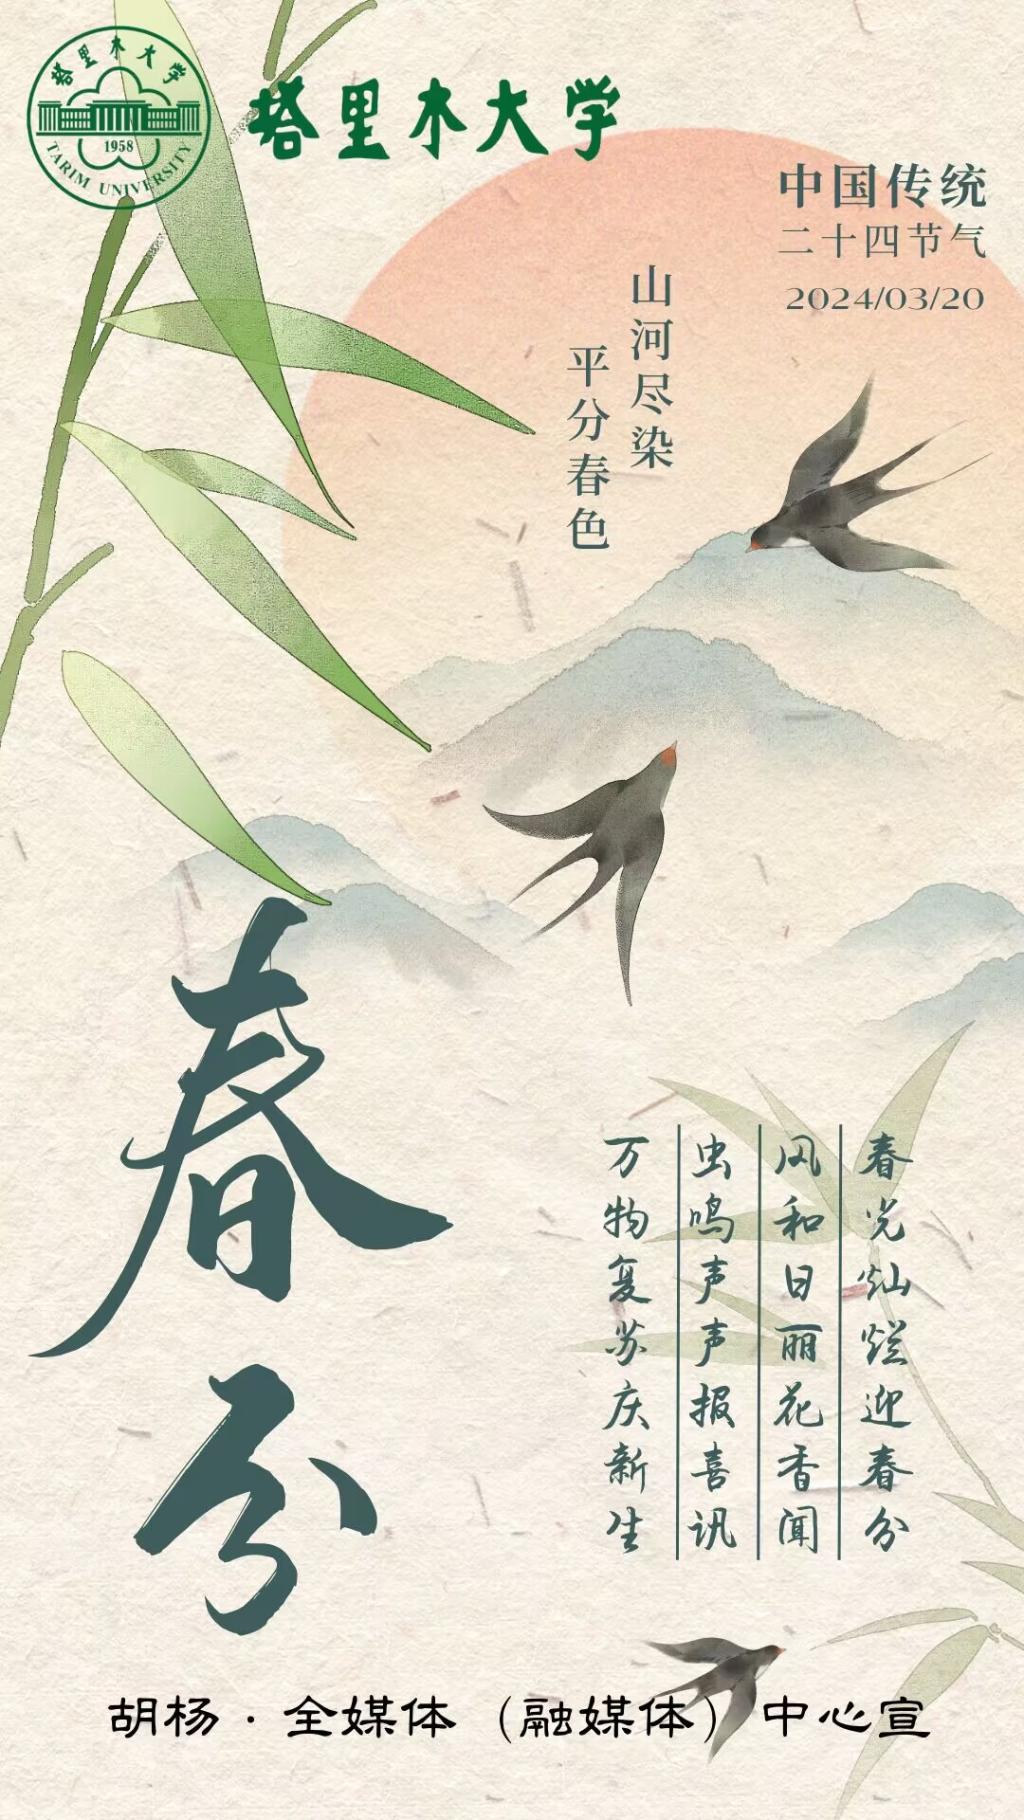 塔里木大学
1958
TARIM UNIVERSITY
塔里木大学
中国传统
二十四节气
2024/03/20
山河尽染
平分春色
春分
春光灿烂迎春分
风和日丽花香闻
虫鸣声声报喜讯
万物复苏庆新生
胡杨·全媒体（融媒体）中心宣